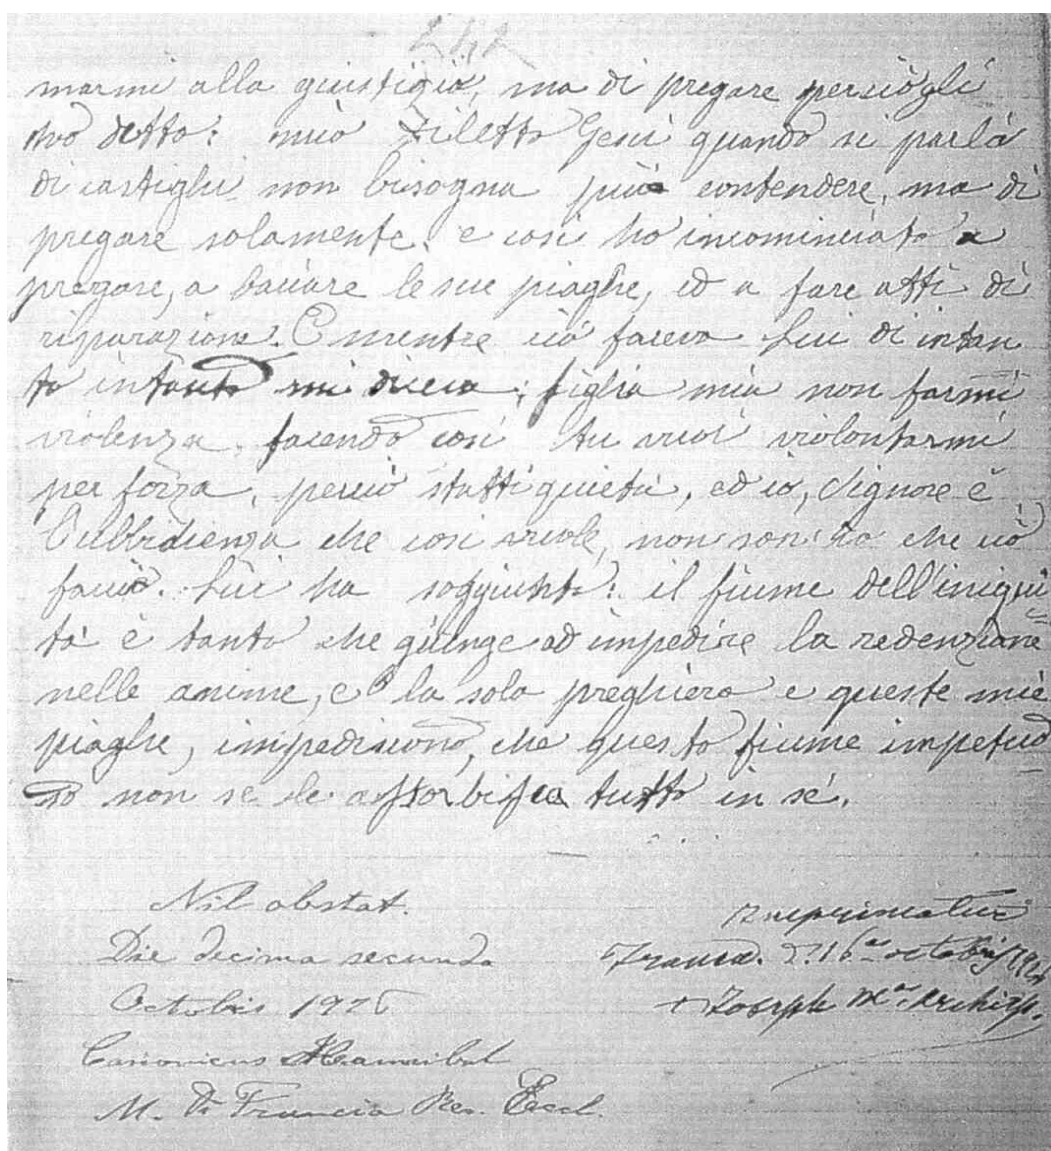 242
marmi alla giustizia, ma di pregare perciò gli
ho detto: mio diletto Gesù quando si parla
di castighi non bisogna più contendere, ma di
pregare solamente. e così ho incominciato a
pregare, a baciare le sue piaghe, ed a fare atti di
riparazione. E mentre ciò faceva Lui di intan
to intanto mi diceva: figlia mia non farmi
violenza, facendo così tu vuoi violentarmi
per forza, perciò statti quieta, ed io, Signore è
l'ubbidienza che così vuole, non son io che ciò
faccio. Lui ha soggiunto: il fiume dell'iniqui
tà è tanto che giunge ad impedire la redenzione
nelle anime, e la sola preghiera e queste mie
piaghe, impediscono, che questo fiume impetuo
so non se le assorbisca tutto in sé.
Nil obstat.
Die decima secunda
Octobris 1926
Canonicus Hannibal
M. Di Francia Rev. Eccl.
Imprimatur
Trani. D. 16 octobris 1926
+ Joseph M. Archiep.